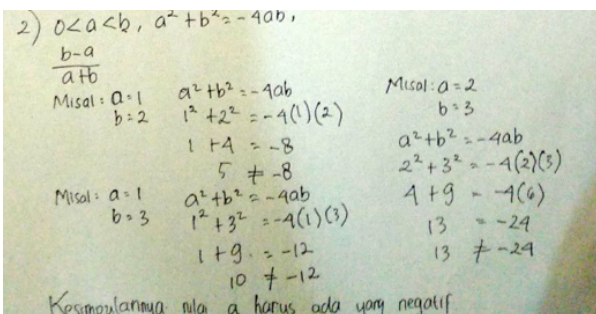 2) 0<a<b, a² + b² = -4ab,
b-a
a+b
Misal : a = 1
b = 2
a² + b² = -4ab
1² + 2² = -4(1)(2)
1 + 4 = -8
5 ≠ -8
Misal : a = 1
b = 3
a² + b² = -4ab
1² + 3² = -4(1)(3)
1 + 9 = -12
10 ≠ -12
Misal : a = 2
b = 3
a² + b² = -4ab
2² + 3² = -4(2)(3)
4 + 9 = -4(6)
13 = -24
13 ≠ -24
Kesimpulannya nilai a harus ada yang negatif